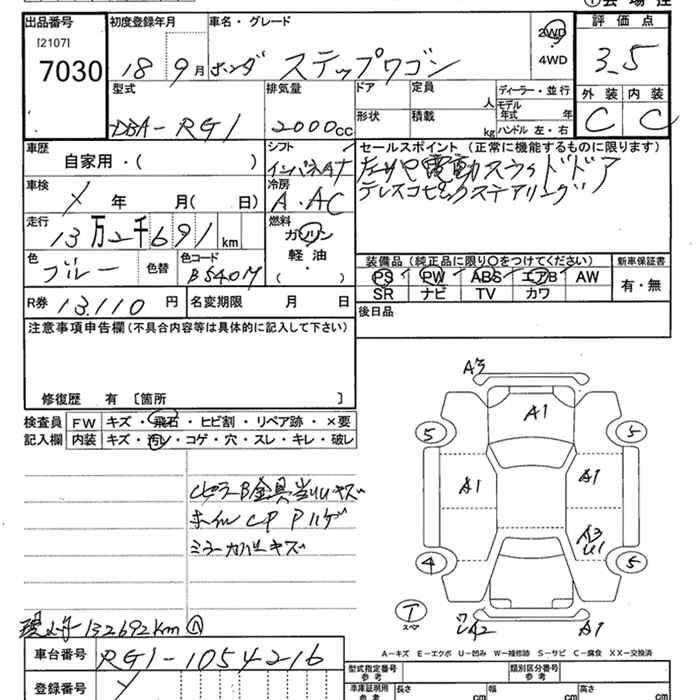 ①会場控
出品番号 初度登録年月 車名・グレード 2WD 評価点
[2107] 4WD
7030 18 9月 ホンダ ステップワゴン 3.5
型式 排気量 ドア 定員 人 ディーラー・並行 外装 内装
モデル年式 年
DBA-RG1 2000cc 形状 積載 kg ハンドル 左・右 C C
車歴 シフト セールスポイント (正常に機能するものに限ります)
自家用・( ) インパネAT 左サイド電動スライドドア
車検 冷房 テレスコピックステアリング
年 月( 日) A・AC
走行 燃料
13万2千691km ガソリン
軽油
色 色替 色コード ・ 装備品 (純正品に限り〇をつけてください) 新車保証書
ブルー B540M ( ) PS PW ABS エアB AW 有・無
SR ナビ TV カワ
R券 13,110円 名変期限 月 日 後日品
注意事項申告欄(不具合内容等は具体的に記入して下さい)
修復歴 有 [箇所 ]
検査員 FW キズ・飛石・ヒビ割・リペア跡・×要
記入欄 内装 キズ・汚レ・コゲ・穴・スレ・キレ・破レ
A3
A1
5 5
A1 A1
A3
U1
4 5
T
スペア
A2 A1
キズ
ホイルCPハゲ
ミラーカバーキズ
132692km
A-キズ E-エクボ U-凹み W-補修跡 S-サビ C-腐食 XX-交換済
車台番号 RG1-1054216 型式指定番号 参考 類別区分番号 参考
登録番号 車庫証明用 参考 長さ cm 幅 cm 高さ cm